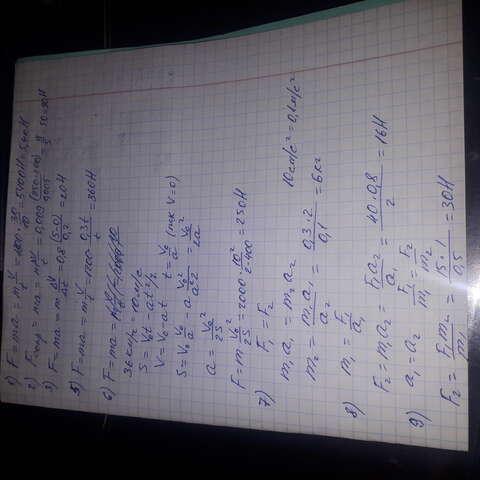 1) F = ma = m V/t = 1800 · 30/10 = 5400H = 5,4кH
2) Fсопр = ma = m ΔV/t = 0,009 = 90H
3) F = ma = m ΔV/Δt = 0,8 (5-0)/0,2 = 20H
5) F = ma = m V/t = 1200 · 0,3t/t = 360H
6) F = ma =
36 км/ч = 10 м/с
S = V₀t - at²/2
V = V₀ - at t = V₀/a (тк V=0)
S = V₀ V₀/a - a V₀²/a²2 = V₀²/2a
a = V₀²/2S
F = m V₀²/2S = 2000 · 10²/2·400 = 250H
7) F₁ = F₂
m₁a₁ = m₂a₂ 10см/с² = 0,1м/с²
m₂ = m₁a₁/a₂ = 0,3·2/0,1 = 6кг
8) m₁ = F₁/a₁
F₂ = m₁a₂ = F₁a₂/a₁ = 40·0,8/2 = 16H
9) a₁ = a₂ F₁/m₁ = F₂/m₂
F₂ = F₁m₂/m₁ = 15·1/0,5 = 30H